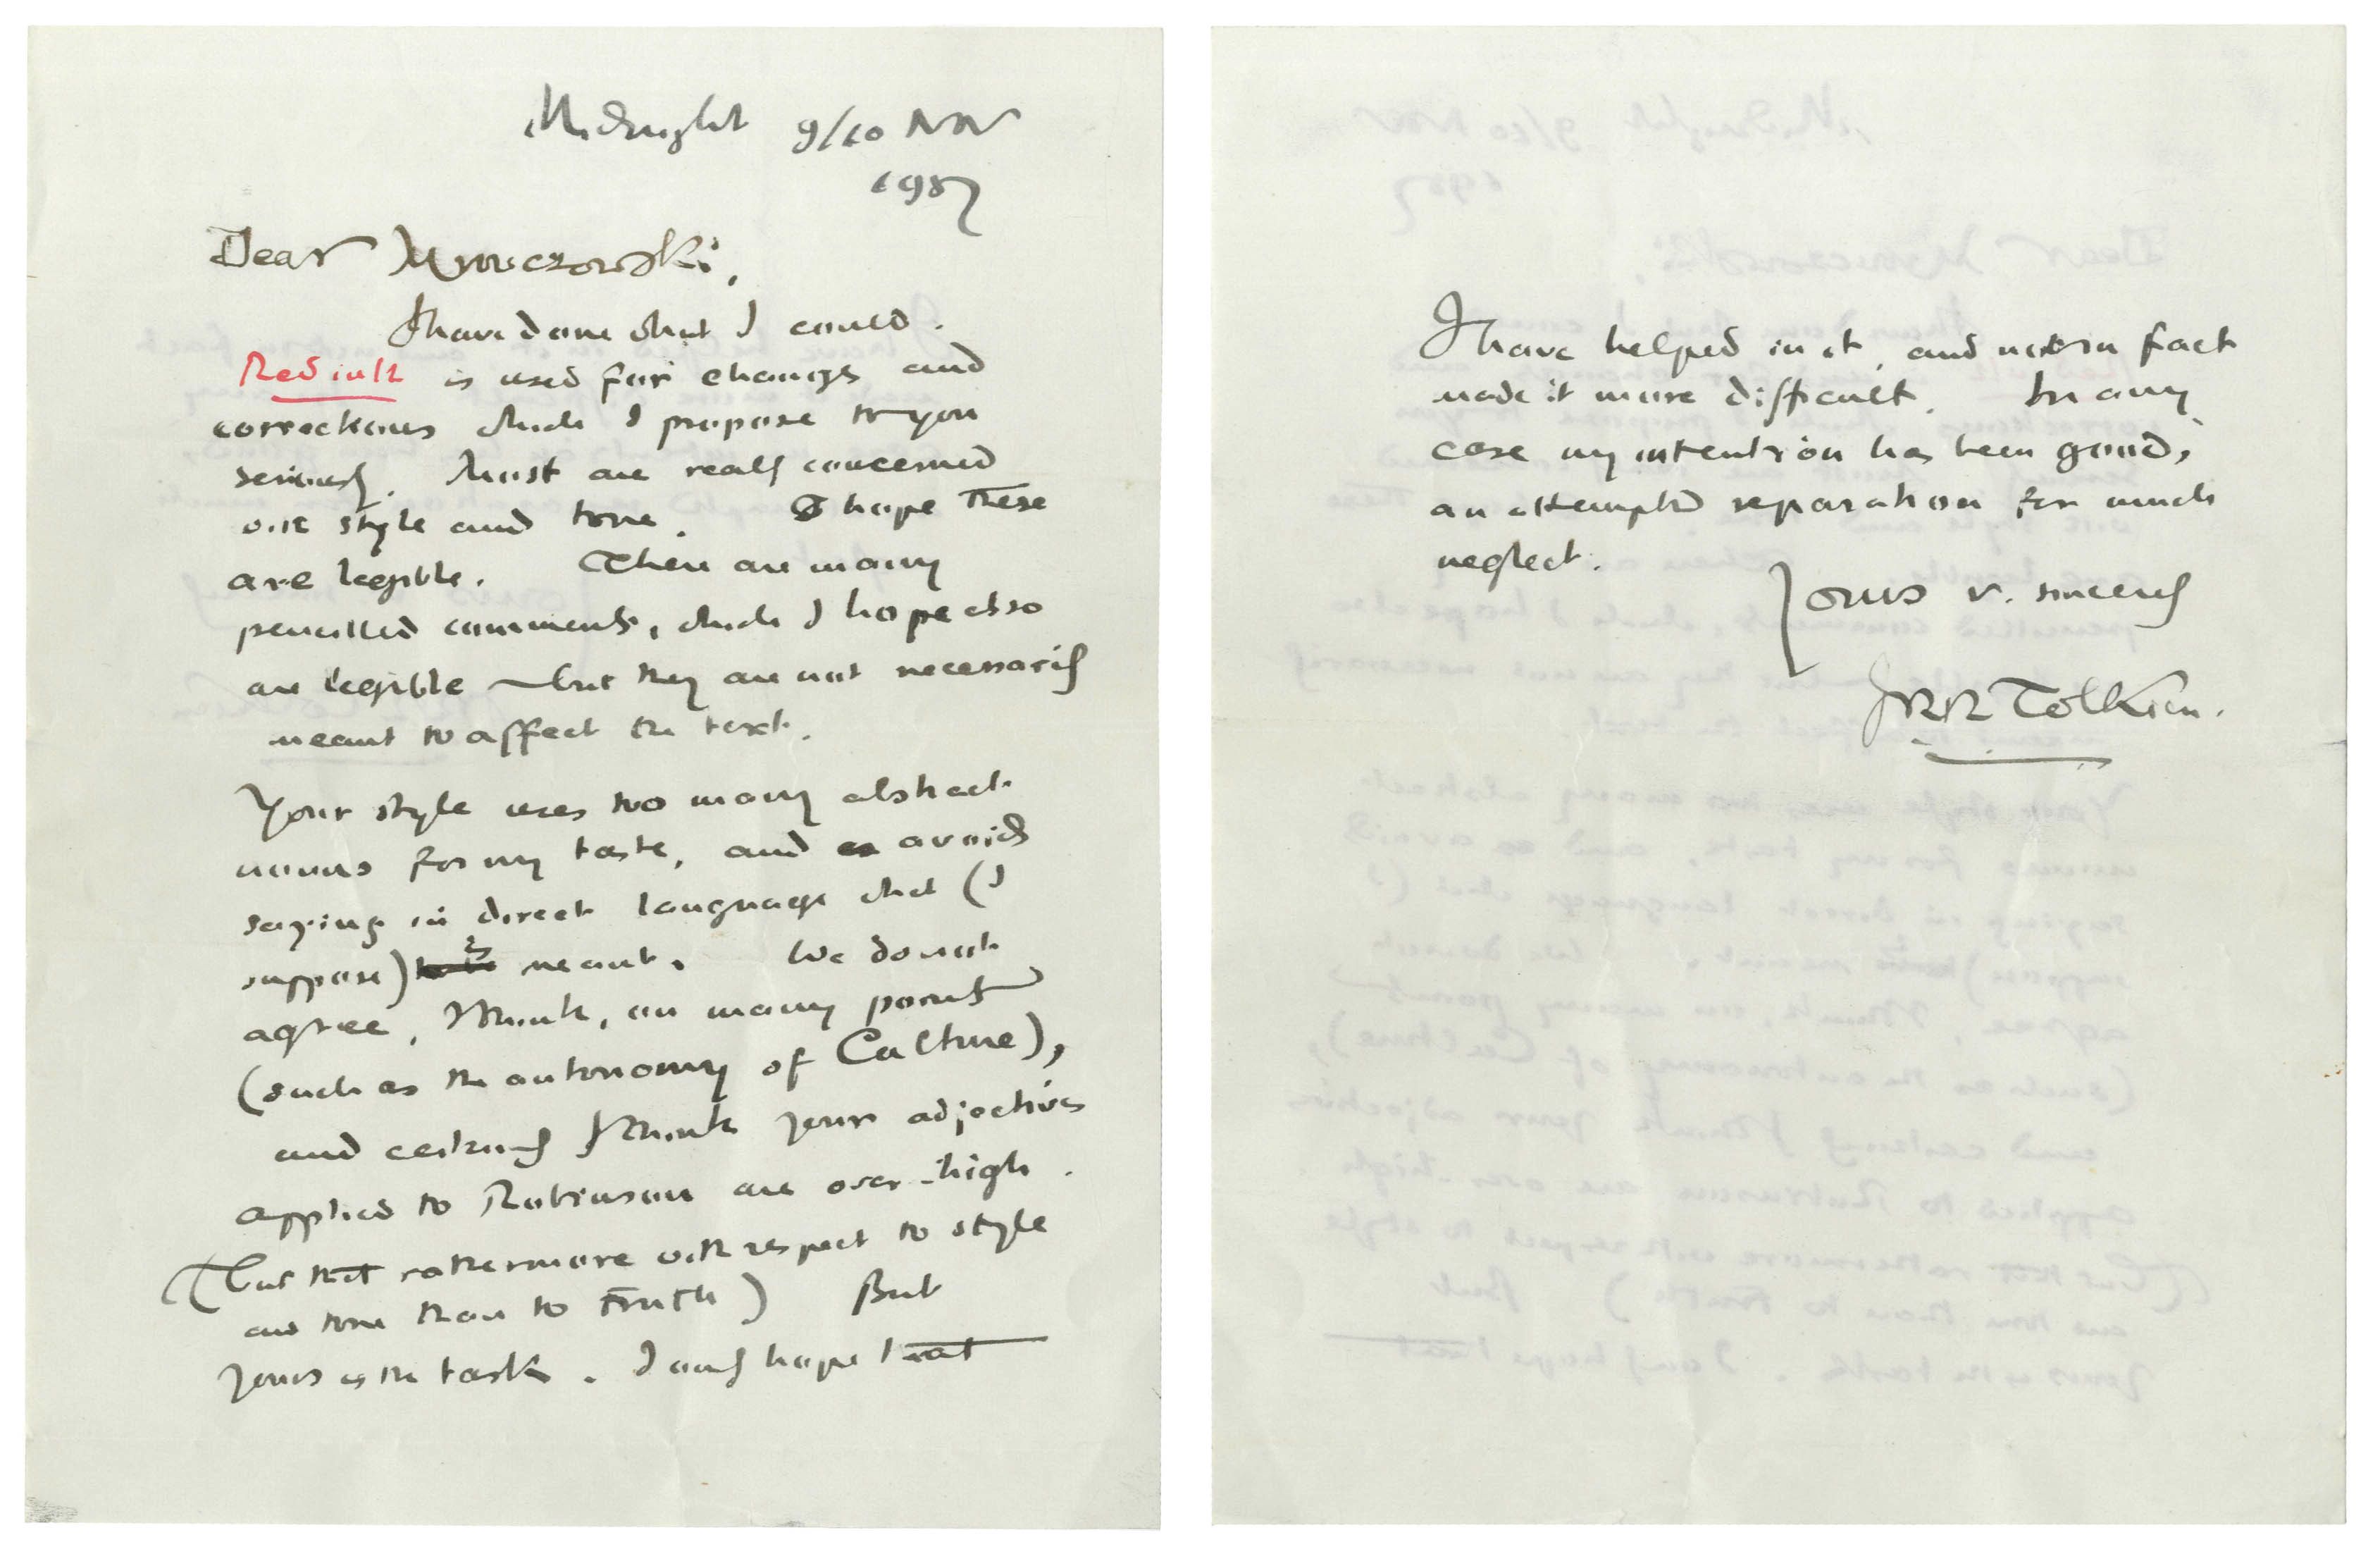 Midnight 9/10 Nov
1957
Dear Mroczkowski,
I have done what I could.
Red ink is used for changes and
corrections which I propose to you
seriously. Most are really concerned
with style and tone. I hope these
are legible. There are many
pencilled comments, which I hope also
are legible – but they are not necessarily
meant to affect the text.
Your style uses too many abstract
nouns for my taste, and avoids
saying in direct language what (I
suppose) is meant. We do not
agree, I think, on many points
(such as the autonomy of Culture),
and certainly I think your adjectives
applied to Robinson are over-high.
(but that rather more with respect to style
and tone than to truth) But
yours is the task. I only hope that
I have helped in it, and not in fact
made it more difficult. In any
case my intention has been good,
an attempted reparation for much
neglect.
Yours v. sincerely
JRR Tolkien.